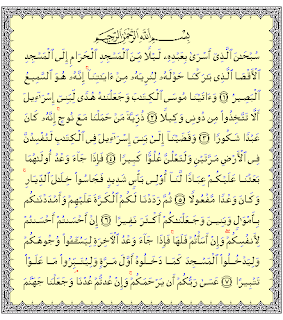 بِسْمِ اللَّهِ الرَّحْمَٰنِ الرَّحِيمِ
سُبْحَٰنَ ٱلَّذِىٓ أَسْرَىٰ بِعَبْدِهِۦ لَيْلًا مِّنَ ٱلْمَسْجِدِ ٱلْحَرَامِ إِلَى ٱلْمَسْجِدِ
ٱلْأَقْصَا ٱلَّذِى بَٰرَكْنَا حَوْلَهُۥ لِنُرِيَهُۥ مِنْ ءَايَٰتِنَآ إِنَّهُۥ هُوَ ٱلسَّمِيعُ
ٱلْبَصِيرُ ۝١ وَءَاتَيْنَا مُوسَى ٱلْكِتَٰبَ وَجَعَلْنَٰهُ هُدًى لِّبَنِىٓ إِسْرَٰٓءِيلَ
أَلَّا تَتَّخِذُوا۟ مِن دُونِى وَكِيلًا ۝٢ ذُرِّيَّةَ مَنْ حَمَلْنَا مَعَ نُوحٍ إِنَّهُۥ كَانَ
عَبْدًا شَكُورًا ۝٣ وَقَضَيْنَآ إِلَىٰ بَنِىٓ إِسْرَٰٓءِيلَ فِى ٱلْكِتَٰبِ لَتُفْسِدُنَّ
فِى ٱلْأَرْضِ مَرَّتَيْنِ وَلَتَعْلُنَّ عُلُوًّا كَبِيرًا ۝٤ فَإِذَا جَآءَ وَعْدُ أُولَىٰهُمَا
بَعَثْنَا عَلَيْكُمْ عِبَادًا لَّنَآ أُو۟لِى بَأْسٍ شَدِيدٍ فَجَاسُوا۟ خِلَٰلَ ٱلدِّيَارِ
وَكَانَ وَعْدًا مَّفْعُولًا ۝٥ ثُمَّ رَدَدْنَا لَكُمُ ٱلْكَرَّةَ عَلَيْهِمْ وَأَمْدَدْنَٰكُم
بِأَمْوَٰلٍ وَبَنِينَ وَجَعَلْنَٰكُمْ أَكْثَرَ نَفِيرًا ۝٦ إِنْ أَحْسَنتُمْ أَحْسَنتُمْ
لِأَنفُسِكُمْ وَإِنْ أَسَأْتُمْ فَلَهَا فَإِذَا جَآءَ وَعْدُ ٱلْءَاخِرَةِ لِيَسُۥٓـُٔوا۟ وُجُوهَكُمْ
وَلِيَدْخُلُوا۟ ٱلْمَسْجِدَ كَمَا دَخَلُوهُ أَوَّلَ مَرَّةٍ وَلِيُتَبِّرُوا۟ مَا عَلَوْا۟
تَتْبِيرًا ۝٧ عَسَىٰ رَبُّكُمْ أَن يَرْحَمَكُمْ وَإِنْ عُدتُّمْ عُدْنَا وَجَعَلْنَا جَهَنَّمَ